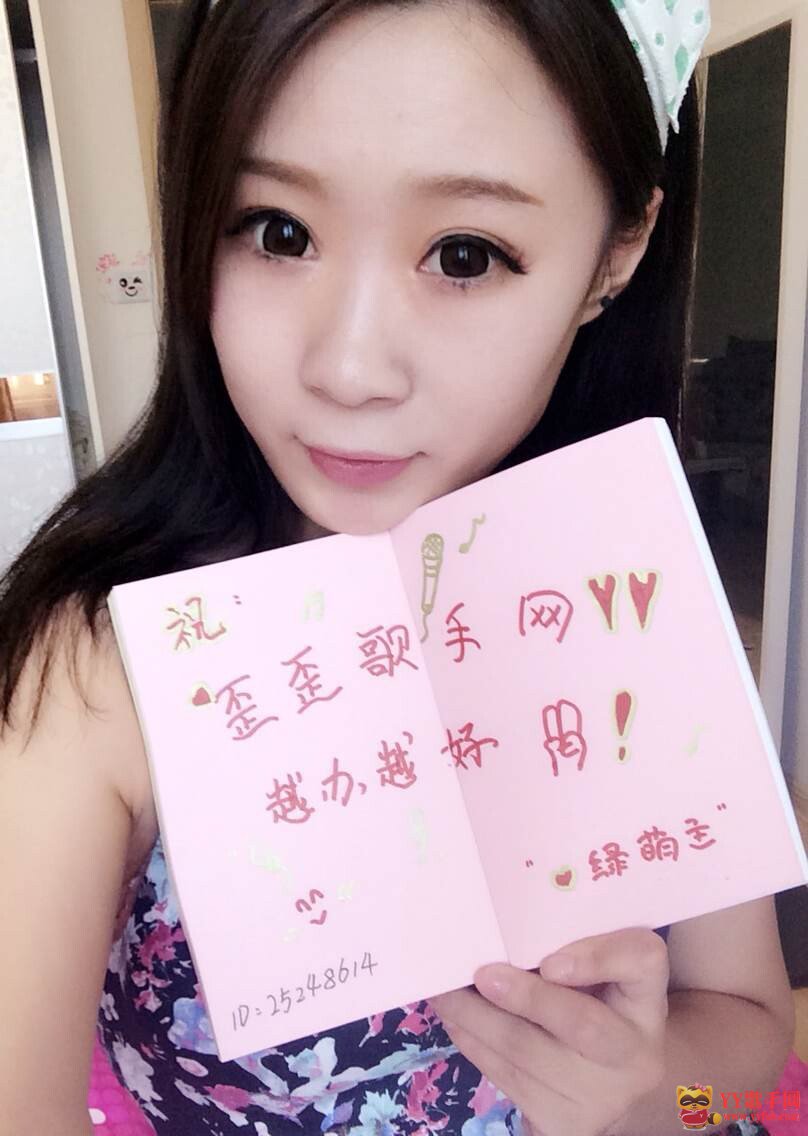 祝:
歪歪歌手网
越办越好!
"绿萌主"
ID:25248614
YY歌手网